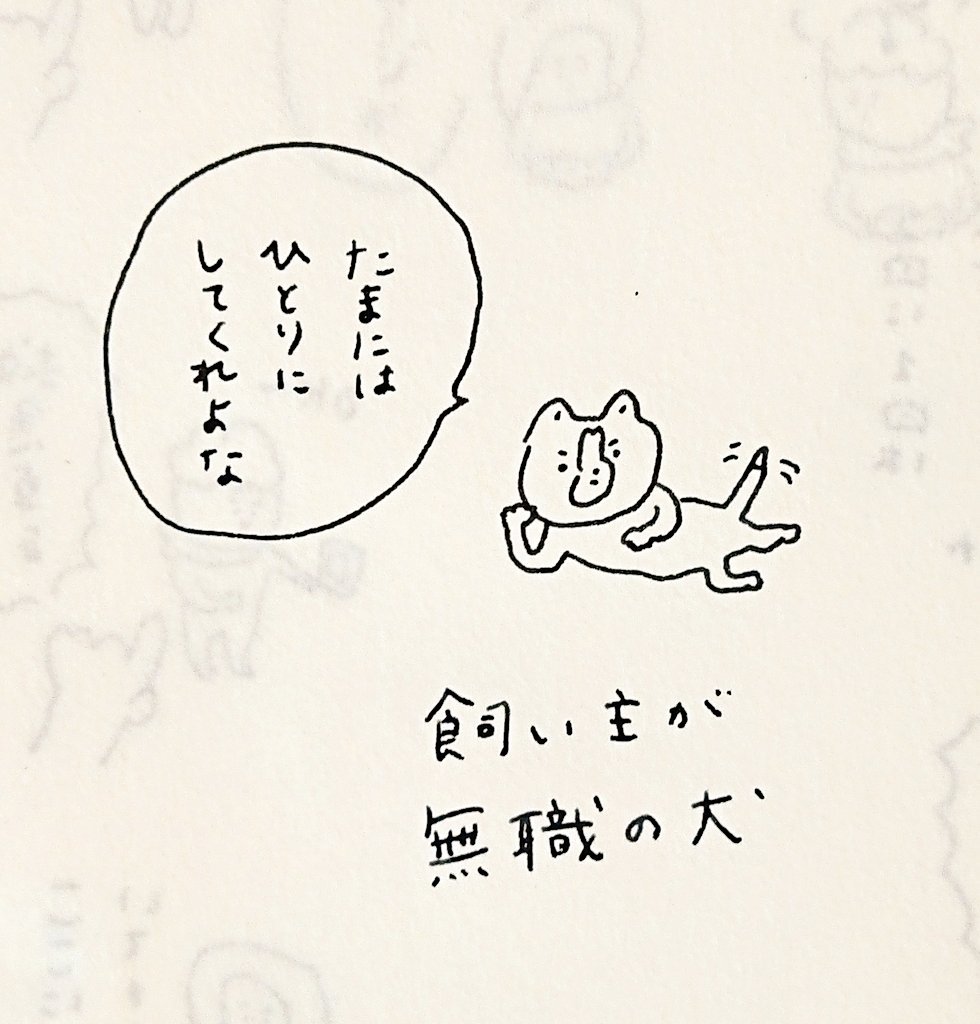 たまには
ひとりに
してくれよな
飼い主が
無職の犬